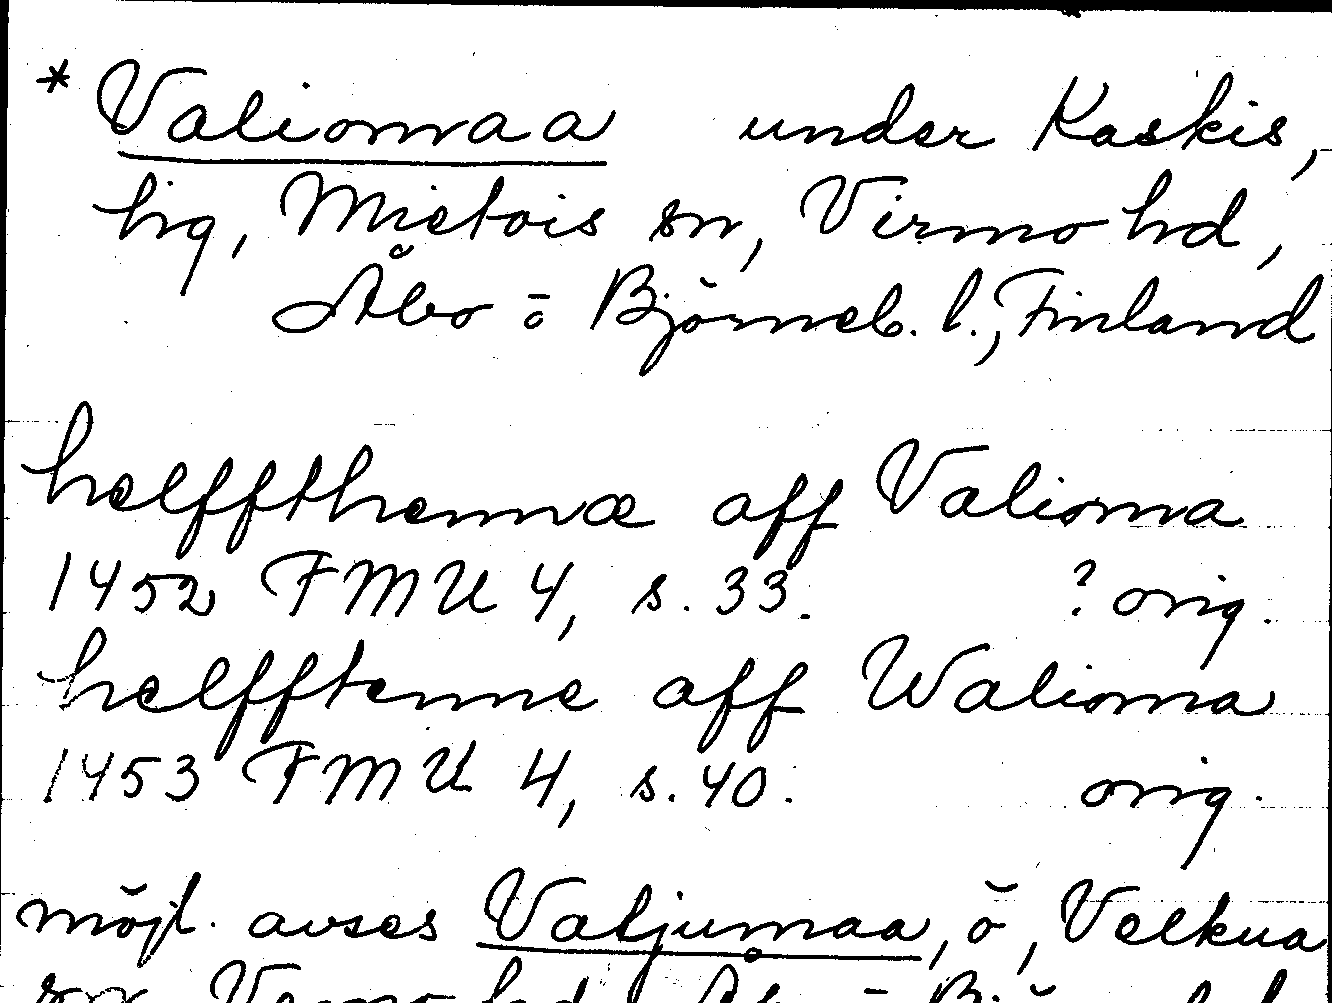 * Valiomaa under Kaskis,
hg, Mietois sn, Virmo hd,
Åbo ō Björneb. l., Finland
helffthennæ aff Valioma
1452 FMU 4, s. 33. ? orig.
helfftenne aff Walioma
1453 FMU 4, s. 40. orig.
möjl. avses Valjumaa, ö, Velkua